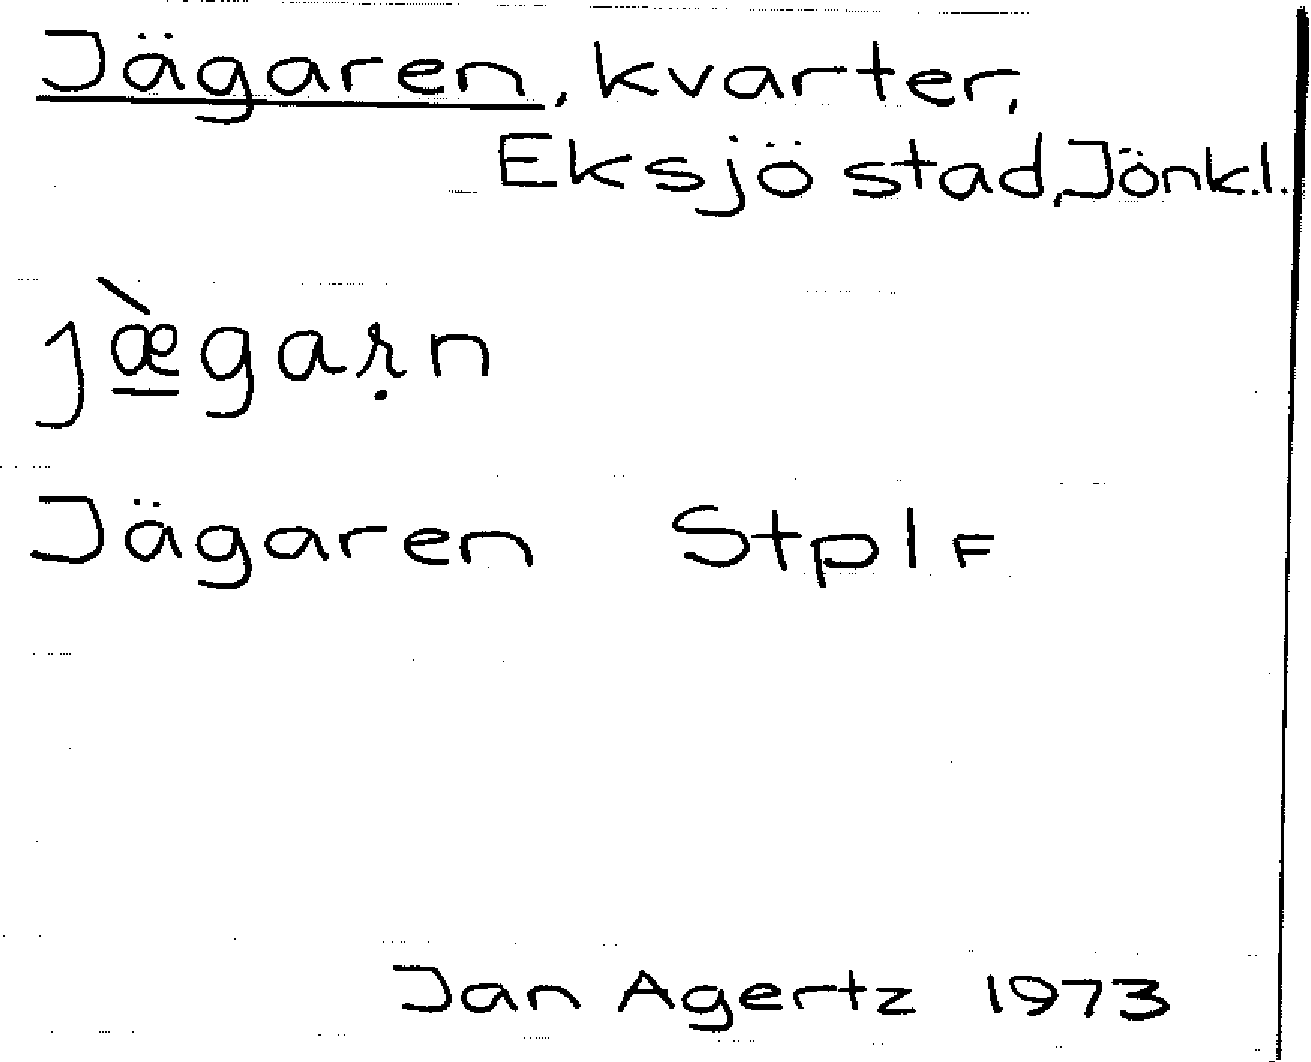 Jägaren, kvarter,
Eksjö stad, Jönk.l.
jæ̲̀gaṛn
Jägaren Stplf
Jan Agertz 1973